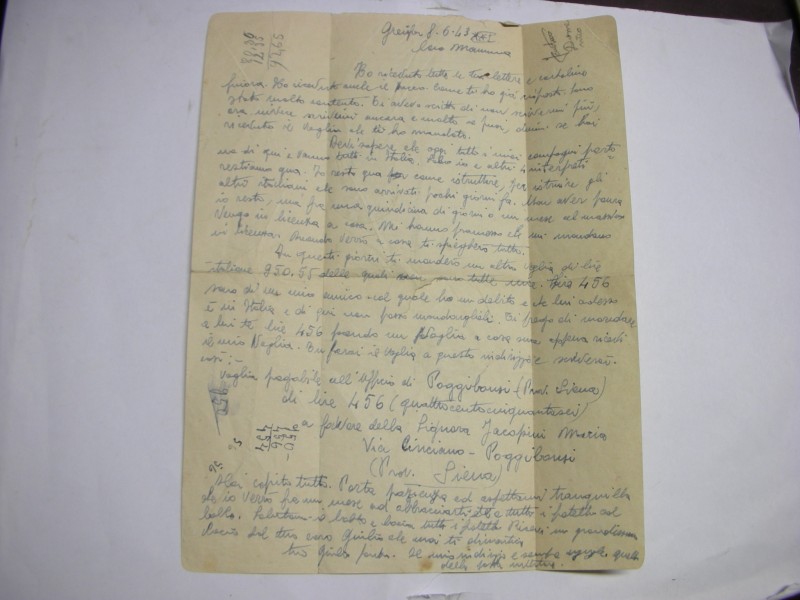 8.6.43 XXI
Cara Mamma
Ho ricevuto tutte le tue lettere e cartoline
finora. Ho ricevuto anche
stato molto contento. Ti avevo scritto di non scrivermi più,
ora invece scrivimi ancora e molto se puoi, dimmi se hai
ricevuto il vaglia che ti ho mandato.
Devi sapere che oggi tutti i miei compagni
di qui e vanno tutti in Italia. Solo io e altri interpreti
restiamo qua. Io resto qua come istruttore, per istruire gli
altri italiani che sono arrivati pochi giorni fa. Non aver paura
io resto, ma fra una quindicina di giorni o un mese al massimo
vengo in licenza a casa. Mi hanno promesso che mi mandano
in licenza. Quando verrò a casa ti spiegherò tutto.
In questi giorni ti manderò un altro vaglia di lire
italiane 950.55 delle quali non sono tutte mie. Lire 456
sono di un mio amico col quale ho un debito e che lui adesso
è in Italia e di qui non posso mandargliele. Ti prego di mandare
a lui le lire 456 facendo un vaglia a casa sua appena ricevi
il mio vaglia. Tu farai il vaglia a questo indirizzo e scriverai
così :-
Vaglia pagabile all'Ufficio di Poggibonsi (Prov. Siena)
di lire 456 (quattrocentocinquantasei)
a favore della Signora Jacopini Maria
Via Cinciano - Poggibonsi
(Prov. Siena)
Hai capito tutto. Porta pazienza ed aspettami tranquilla
che io verrò fra un mese ad abbracciarti te e tutti i fratelli ed
babbo. Salutami il babbo e bacia tutti i fratelli. Ricevi un grandissimo
bacio dal tuo caro Giulio che mai ti dimentica
tuo Giulio
Il mio indirizzo è sempre uguale quello
della posta